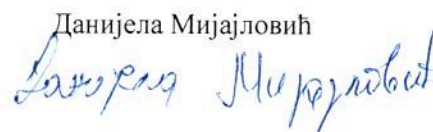 Данијела Мијајловић
Данијела Мијајловић